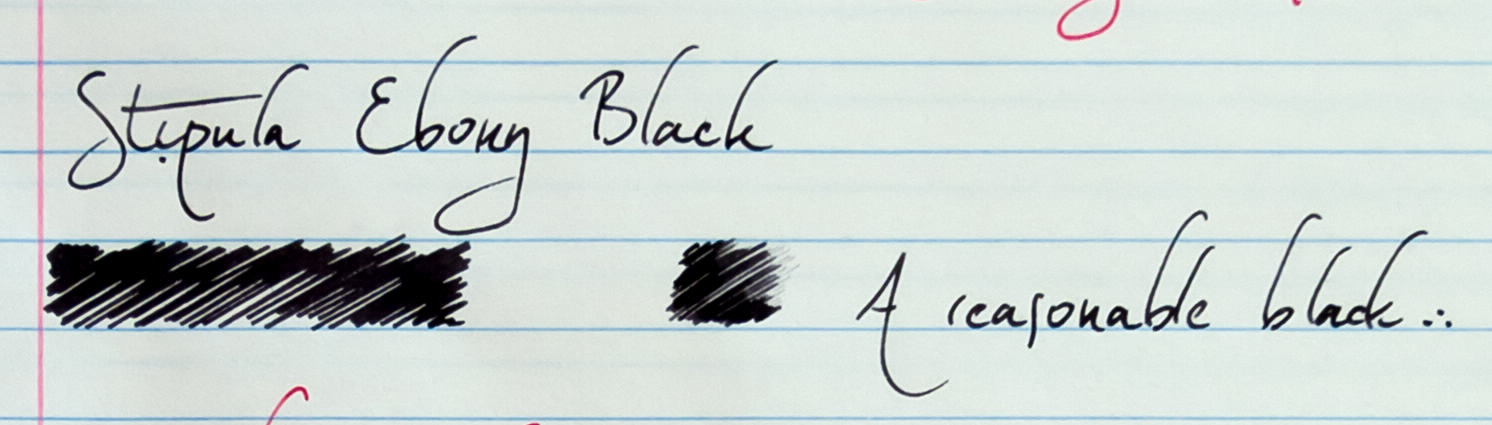 Stipula Ebony Black
A reasonable black...